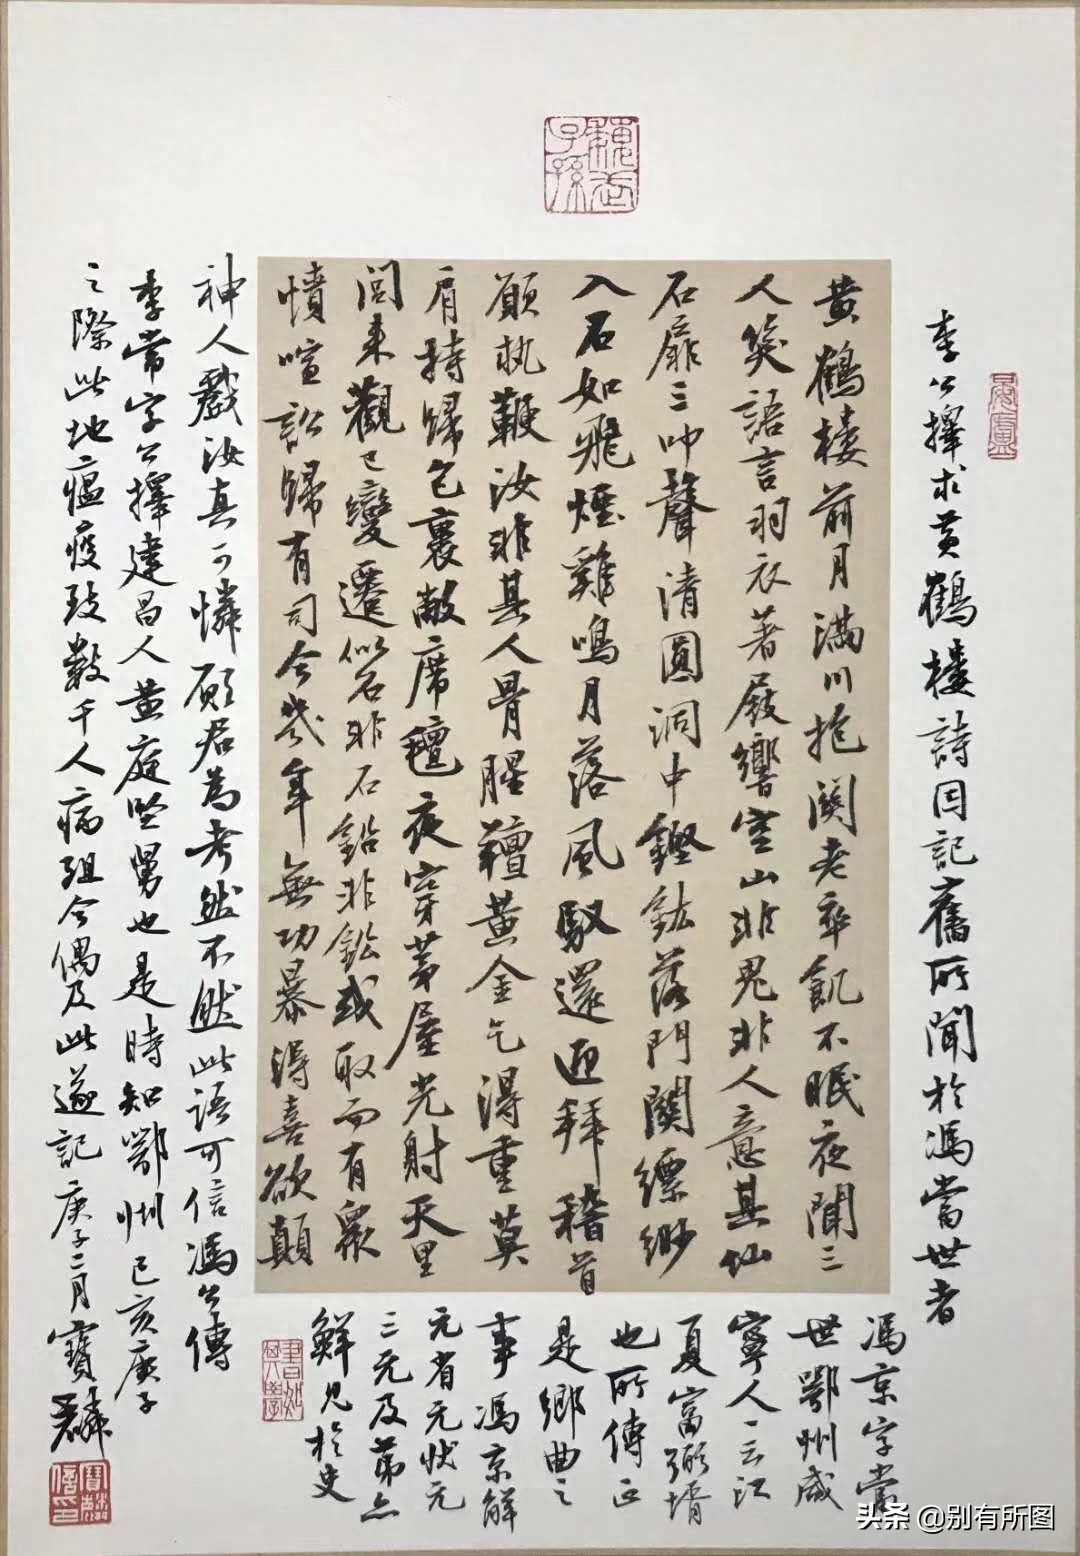 魏武子孫
李公擇求黃鶴樓詩因記舊所聞於馮當世者
黃鶴樓前月滿川抱關老卒飢不眠夜聞三
人笑語言羽衣著屐響空山非鬼非人意其仙
石扉三叩聲清圓洞中鏗鈜落門關縹緲
入石如飛煙雞鳴月落風馭還迎拜稽首
願執鞭汝非其人骨腥羶黃金乞得重莫
肩持歸包裹敝席氈夜穿茅屋光射天里
閭來觀已變遷似石非石鉛非鉛或取而有眾
憤喧訟歸有司今幾年無功暴得喜欲顛
神人戲汝真可憐願君為考然不然此語可信馮公傳
馮京字當
世鄂州咸
寧人一云江
夏富弼壻
也所傳正
是鄉曲之
事馮京解
元省元狀元
三元及第亦
鮮見於史
李常字公擇建昌人黃庭堅舅也是時知鄂州己亥庚子
之際此地瘟疫致數千人病殂今偶及此遂記庚子二月寶麟
寶麟信印
头条 @别有所图